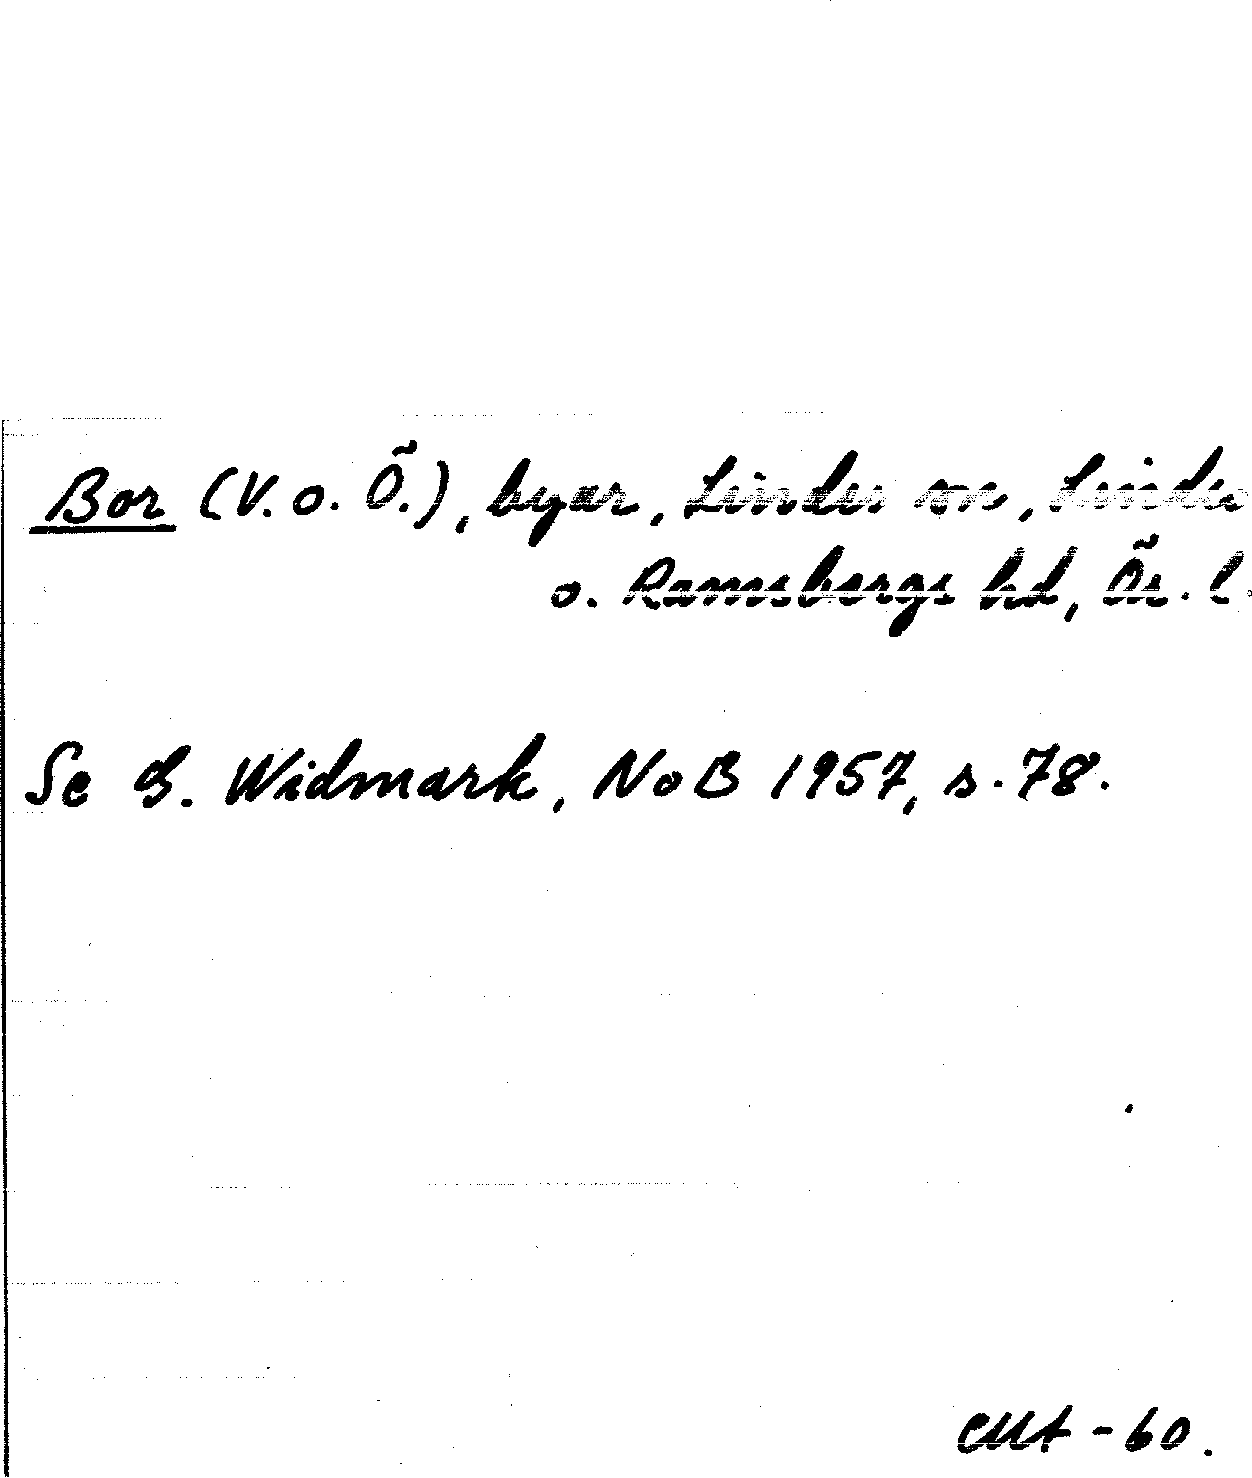 Bor (V. o. Ö.), byar, Lindes sn, Lindes
o. Ramsbergs hd, Ör. l.
Se G. Widmark, NoB 1957, s. 78.
-60.